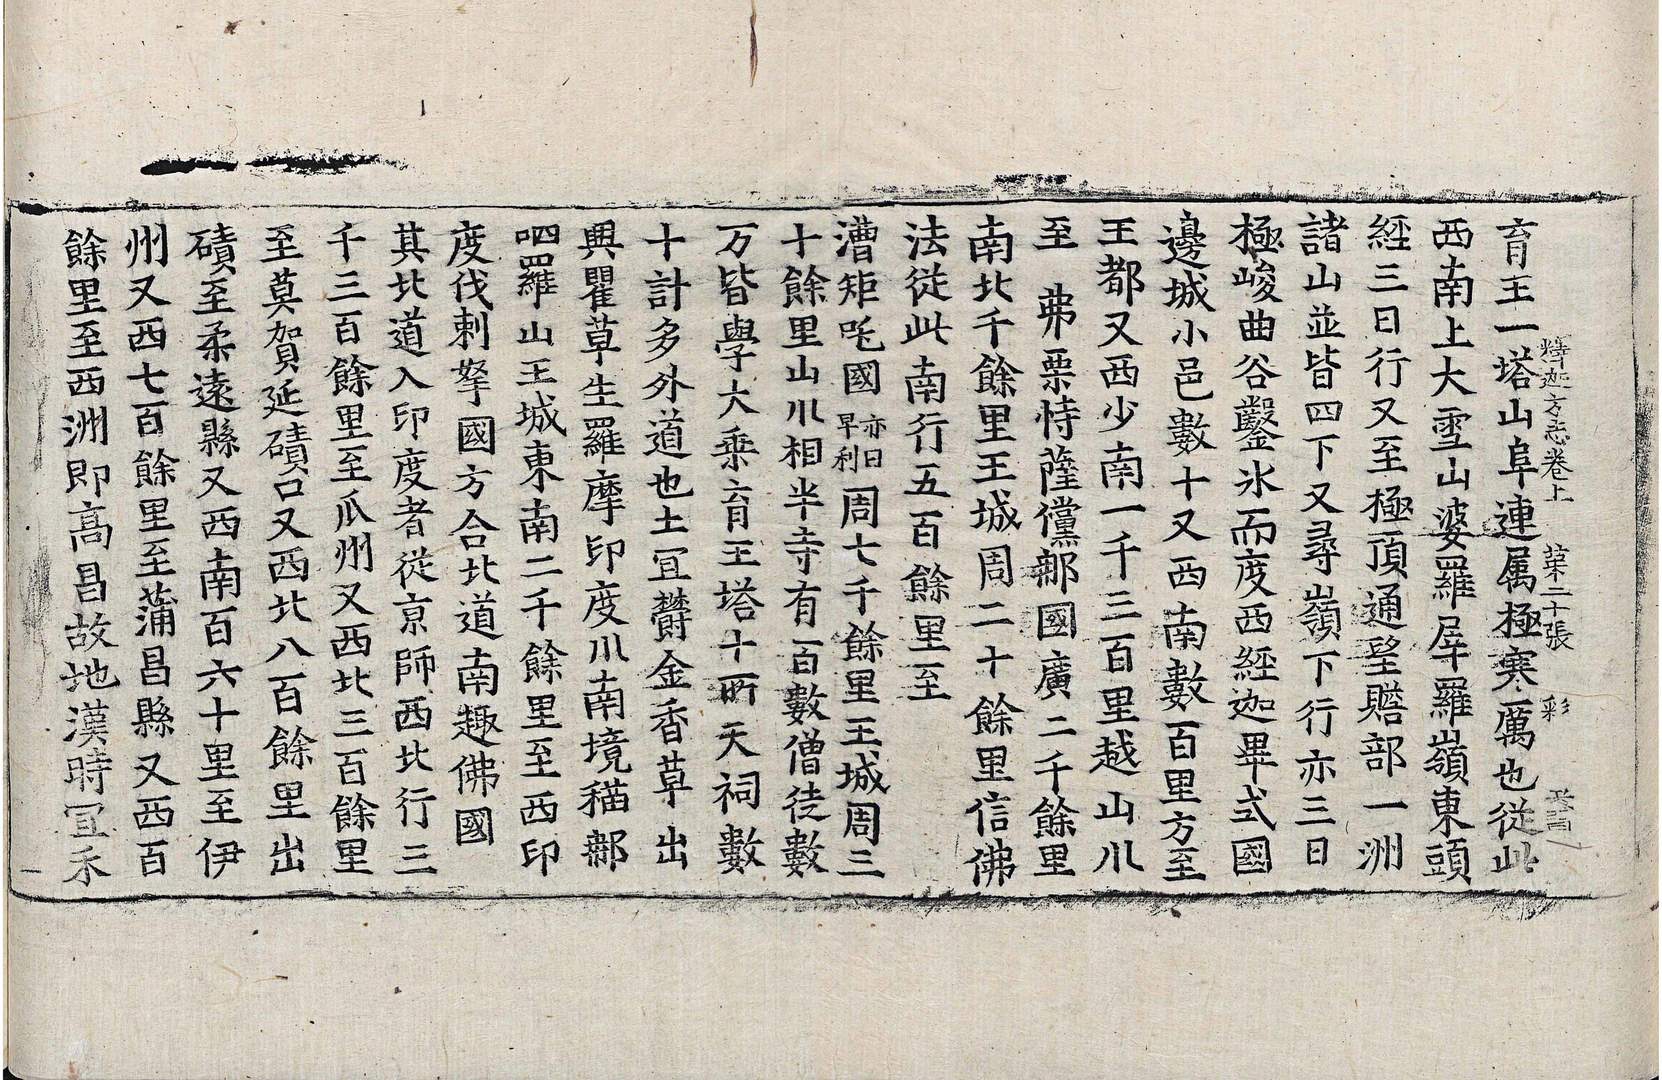 釋迦方志卷上 第二十張 彩
育王一塔山阜連属極寒厲也從此
西南上大雪山婆羅犀羅嶺東頭
經三日行又至極頂通望贍部一洲
諸山並皆四下又尋嶺下行亦三日
極峻曲谷鑿氷而度西經迦畢式國
邊城小邑數十又西南數百里方至
王都又西少南一千三百里越山川
至 弗栗恃薩儻那國廣二千餘里
南北千餘里王城周二十餘里信佛
法從此南行五百餘里至
漕矩吒國亦曰早利周七千餘里王城周三
十餘里山川相半寺有百數僧徒數
万皆學大乘育王塔十所天祠數
十計多外道也土宜欝金香草出
興瞿草生羅摩印度川南境稲那
呬羅山王城東南二千餘里至西印
度伐剌拏國方合北道南趣佛國
其北道入印度者從京師西北行三
千三百餘里至瓜州又西北三百餘里
至莫賀延磧口又西北八百餘里出
磧至柔遠縣又西南百六十里至伊
州又西七百餘里至蒲昌縣又西百
餘里至西洲即高昌故地漢時宜禾